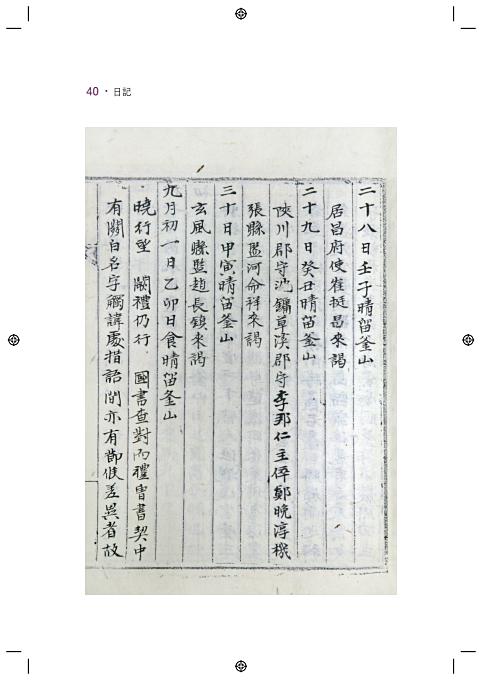 40 · 日記
二十八日壬子晴留釜山
居昌府使崔挺昌來謁
二十九日癸丑晴留釜山
陜川郡守池鏞草溪郡守李邦仁主倅鄭晩淳機
張縣監河命祥來謁
三十日甲寅晴留釜山
玄風縣監趙長鎭來謁
九月初一日乙卯日食晴留釜山
曉行望 闕禮仍行 國書査對而禮曺書契中
有關白名字獨諱處措語間亦有節候差異者故